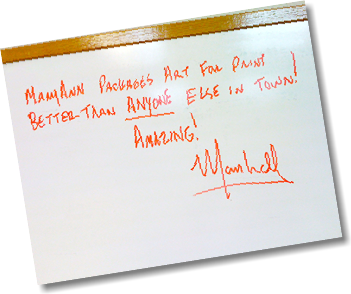 MARYANN PACKAGES ART FOR PRINT
BETTER THAN ANYONE ELSE IN TOWN!
AMAZING!
Marshall